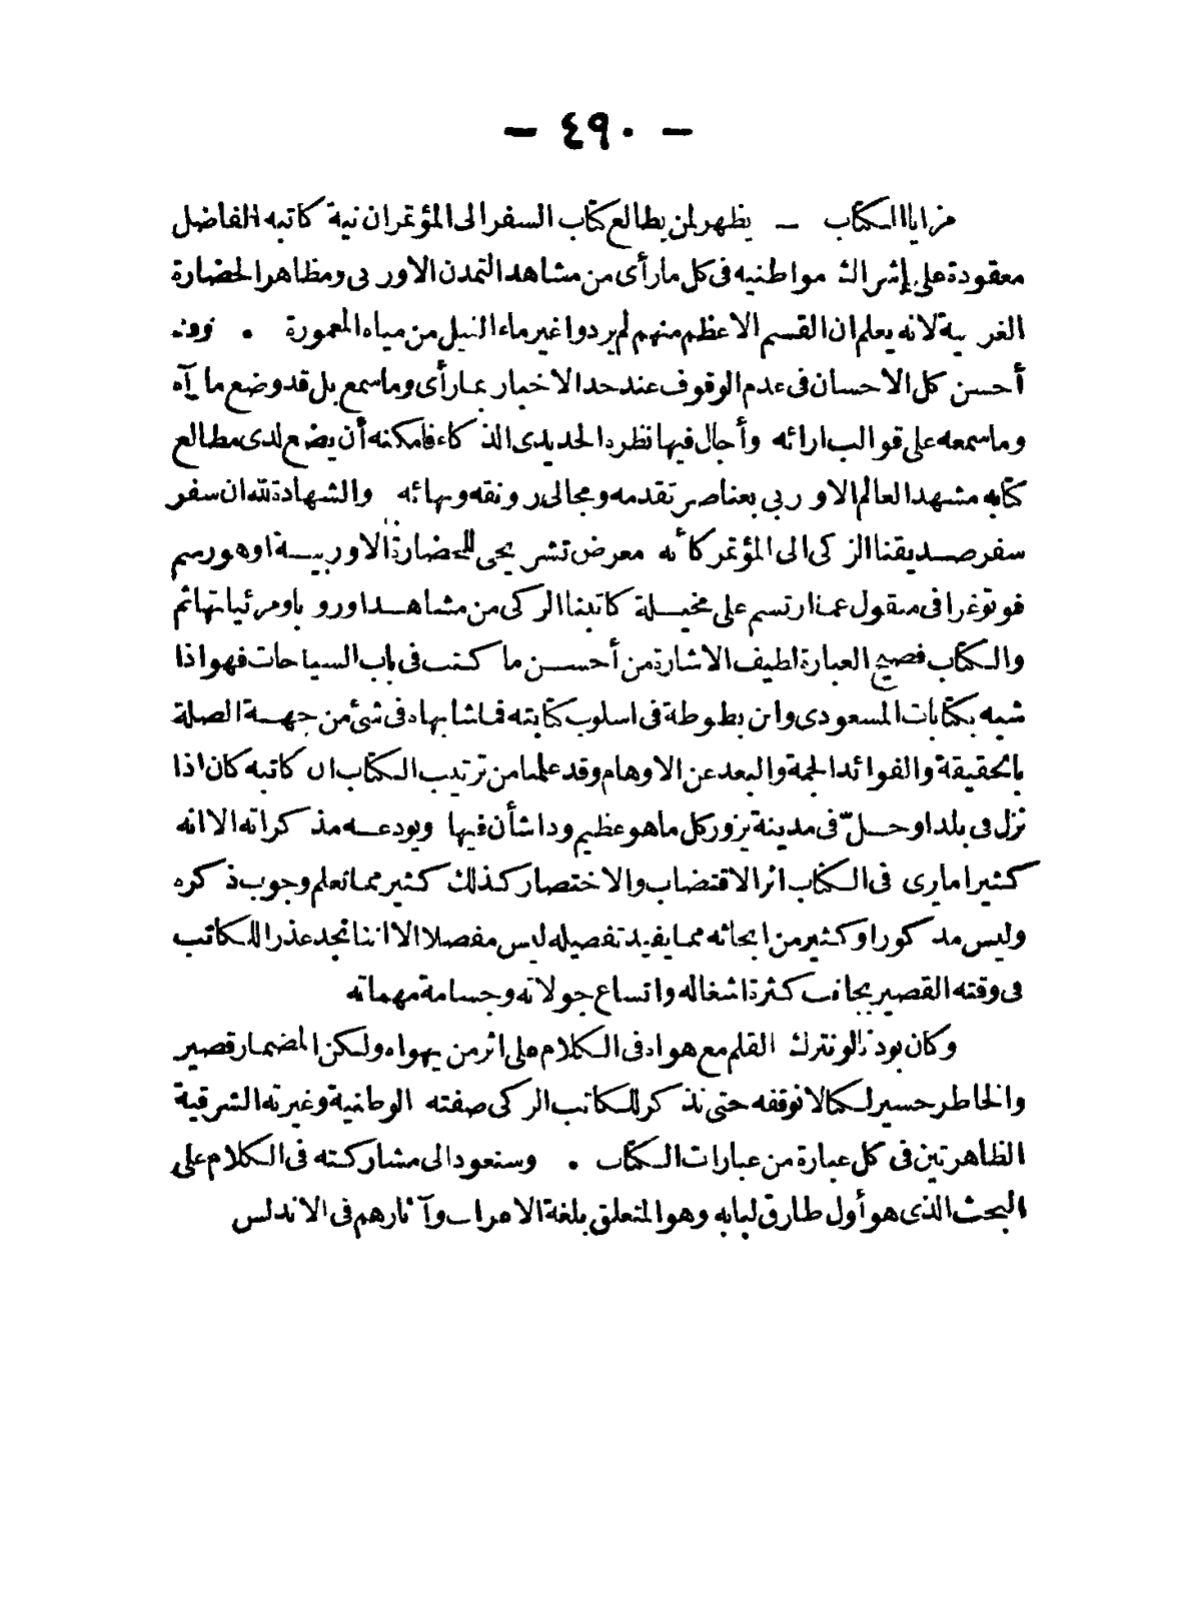 — ٤٩٠ —
مزايا الكتاب — يظهر لمن يطالع كتاب السفر الى المؤتمر ان نية كاتبه الفاضل
معقودة على إشراك مواطنيه فى كل ما رأى من مشاهد التمدن الاوربى ومظاهر الحضارة
الغربية لانه يعلم ان القسم الاعظم منهم لم يردوا غير ماء النيل من مياه المعمورة .
أحسن كل الاحسان فى عدم الوقوف عند حد الاخبار بما رأى وما سمع بل قد وضع ما
وما سمعه على قوالب ارائه وأجال فيها نظره الحديدى الذكاء فامكنه أن يضع لدى مطالع
كتابه مشهد العالم الاوربى بعناصر تقدمه ومجالى رونقه وبهائه والشهادة لله ان سفر
سفر صديقنا الزكى الى المؤتمر كأنه معرض تشريحى للحضارة الاوربية او هو رسم
فوتوغرافى منقول عما ارتسم على مخيلة كاتبنا الزكى من مشاهد اوروبا ومرئياتها ثم
والكتاب فصيح العبارة لطيف الاشارة من أحسن ما كتب فى باب السياحات فهو اذا
شبه بكتابات المسعودى وابن بطوطة فى اسلوب كتابته فما شابهاه فى شئ من جهة الصلة
بالحقيقة والفوائد الجمة والبعد عن الاوهام وقد علمنا من ترتيب الكتاب ان كاتبه كان اذا
نزل فى بلد او حلّ فى مدينة يزور كل ما هو عظيم وذا شأن فيها ويودعه مذكراته الا انه
كثيرا ما يرى فى الكتاب اثر الاقتضاب والاختصار كذلك كثير مما نعلم وجوب ذكره
وليس مذكورا وكثير من ابحاثه مما يفيد تفصيله ليس مفصلا الا اننا نجد عذرا للكاتب
فى وقته القصير بجانب كثرة اشغاله واتساع جولاته وجسامة مهماته
وكان بودنا لو نترك القلم مع هواه فى الكلام على اثر من يهواه ولكن المضمار قصير
والخاطر حسير لكنا لا نوقفه حتى نذكر للكاتب الزكى صفته الوطنية وغيرته الشرقية
الظاهرتين فى كل عبارة من عبارات الكتاب . وسنعود الى مشاركته فى الكلام على
البحث الذى هو أول طارق لبابه وهو المتعلق بلغة الاعراب وآثارهم فى الاندلس